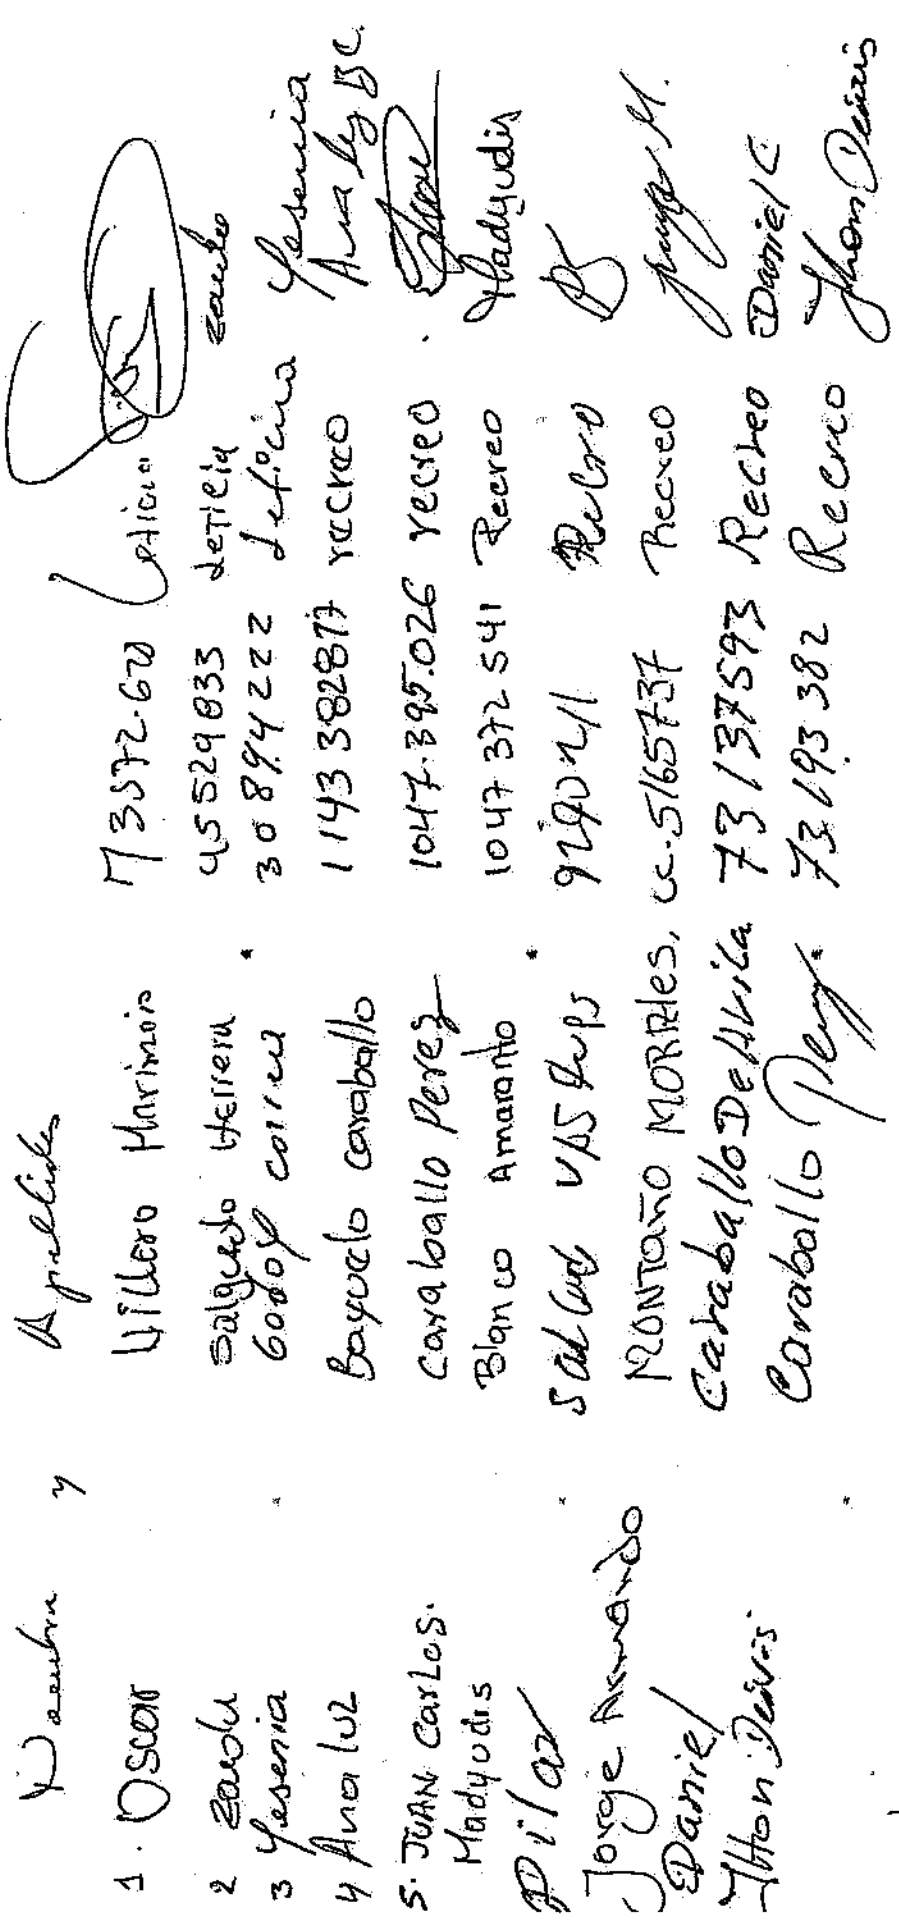 Nombre y Apellidos
1. Oscar Villero Marimon 73572.670 Leticia
2 Zaudu Salguedo Herrera 45529833 Leticia Zaudu
3 Yesenia Godoy Correa 30894222 Leticia Yesenia
4 Ana luz Bayuelo Caraballo 1143382817 recreo Ana luz BC.
5. JUAN CARLOS. Caraballo Perez 1047.395.026 recreo
Madyudis Blanco Amaranto 1047372541 Recreo Madyudis
Pilar Recreo
Jorge Armando MONTAÑO MORALES, cc. 5165737 Recreo
Daniel Caraballo De Avila 73137593 Recreo Daniel C
Jhon Deivis Caraballo 73193382 Recreo Jhon Deivis